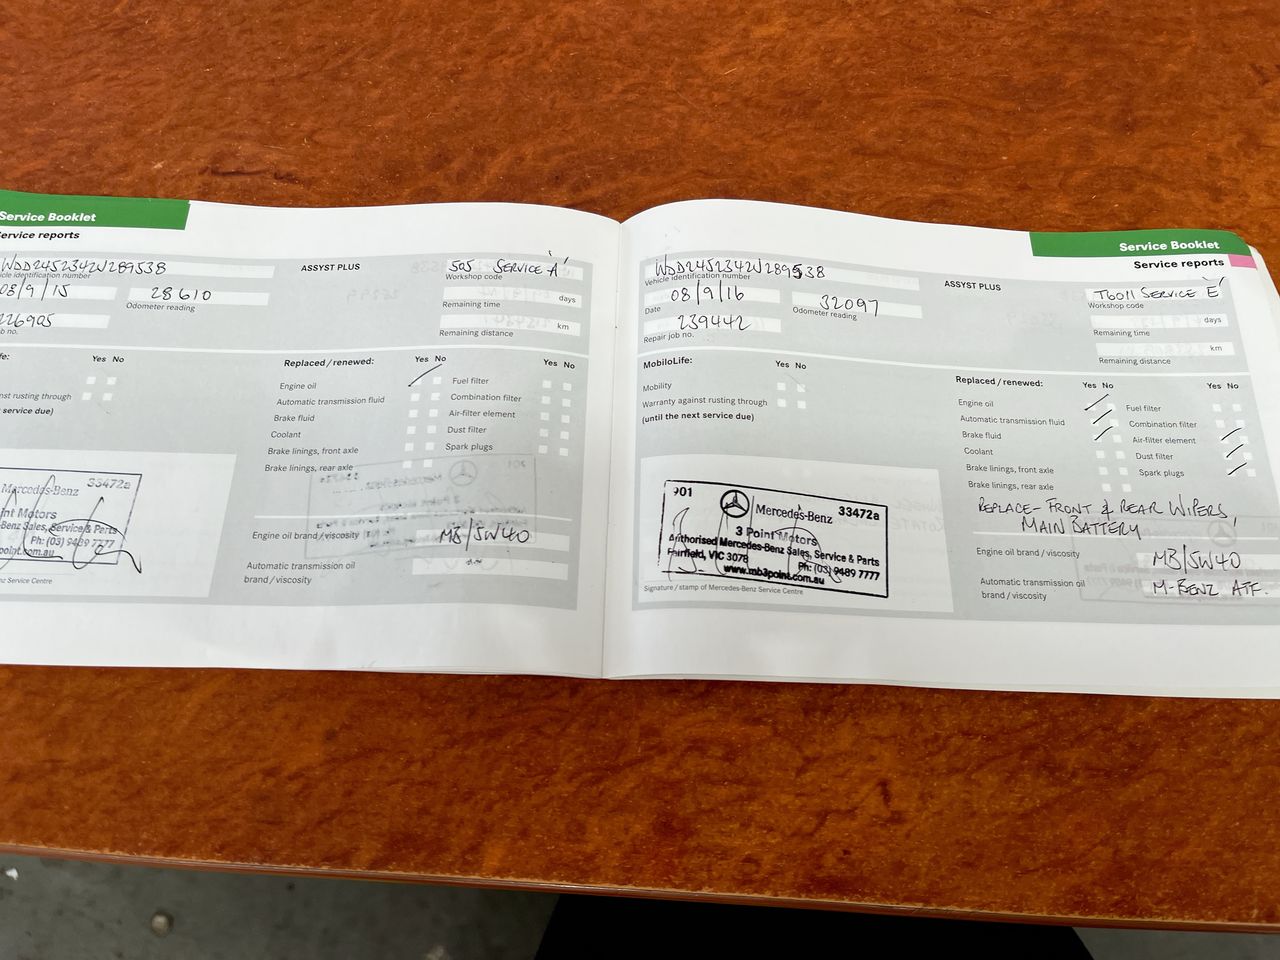 Service Booklet
ervice reports
WDD2452342J289538
icle identification number
08/9/15
28610
Odometer reading
226905
b no.
ASSYST PLUS
505 SERVICE 'A'
Workshop code
days
Remaining time
km
Remaining distance
fe:
Yes No
nst rusting through
service due)
Replaced / renewed:
Yes No
Yes No
Engine oil
Fuel filter
Automatic transmission fluid
Combination filter
Brake fluid
Air-filter element
Coolant
Dust filter
Brake linings, front axle
Spark plugs
Brake linings, rear axle
Mercedes-Benz 33472a
int Motors
Benz Sales, Service & Parts
Ph: (03) 9489 7777
point.com.au
nz Service Centre
Engine oil brand / viscosity
MB/5W40
Automatic transmission oil
brand / viscosity
Service Booklet
Service reports
WDD2452342J289538
Vehicle identification number
08/9/16
Date
32097
Odometer reading
239442
Repair job no.
ASSYST PLUS
T6011 SERVICE 'E'
Workshop code
days
Remaining time
km
Remaining distance
MobiloLife:
Yes No
Mobility
Warranty against rusting through
(until the next service due)
Replaced / renewed:
Yes No
Yes No
Engine oil
Fuel filter
Automatic transmission fluid
Combination filter
Brake fluid
Air-filter element
Coolant
Dust filter
Brake linings, front axle
Spark plugs
Brake linings, rear axle
REPLACE - FRONT & REAR WIPERS,
MAIN BATTERY
901 Mercedes-Benz 33472a
3 Point Motors
Authorised Mercedes-Benz Sales, Service & Parts
Fairfield, VIC 3078 Ph: (03) 9489 7777
www.mb3point.com.au
Signature / stamp of Mercedes-Benz Service Centre
Engine oil brand / viscosity
MB/5W40
Automatic transmission oil
brand / viscosity
M-BENZ ATF.